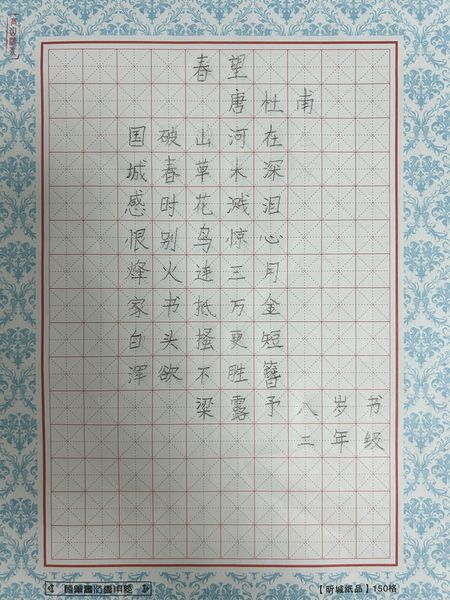 春望
唐杜甫
国破山河在
城春草木深
感时花溅泪
恨别鸟惊心
烽火连三月
家书抵万金
白头搔更短
浑欲不胜簪
梁露予八岁书
二年级
【昕城纸品】150格